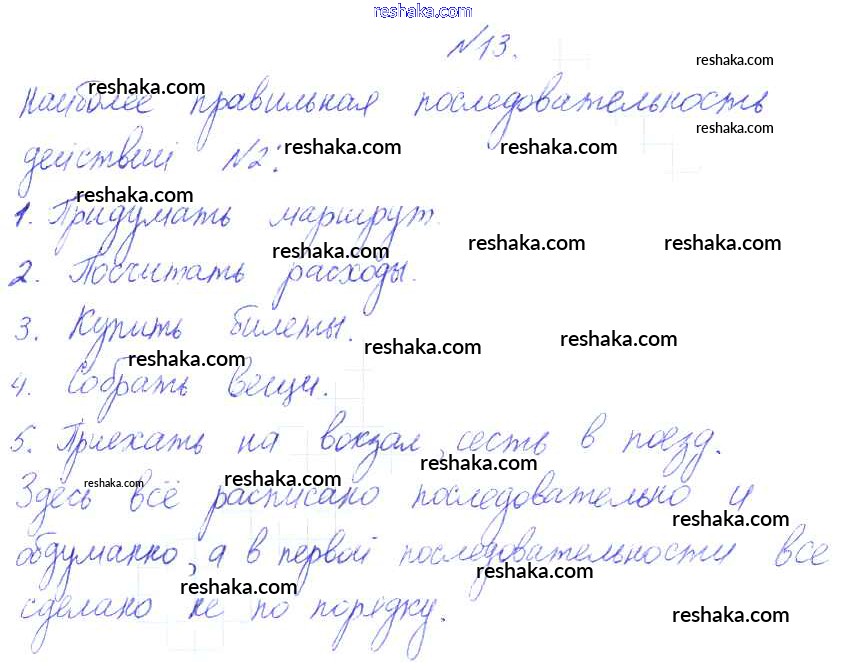 reshaka.com
№13.
reshaka.com
reshaka.com
Наиболее правильная последовательность
reshaka.com
действий №2:
reshaka.com
reshaka.com
reshaka.com
1. Придумать маршрут.
reshaka.com
reshaka.com
reshaka.com
2. Посчитать расходы.
3. Купить билеты.
reshaka.com
reshaka.com
reshaka.com
4. Собрать вещи.
5. Приехать на вокзал, сесть в поезд.
reshaka.com
reshaka.com
reshaka.com
Здесь всё расписано последовательно и
reshaka.com
обдуманно, а в первой последовательности все
reshaka.com
reshaka.com
сделано не по порядку.
reshaka.com